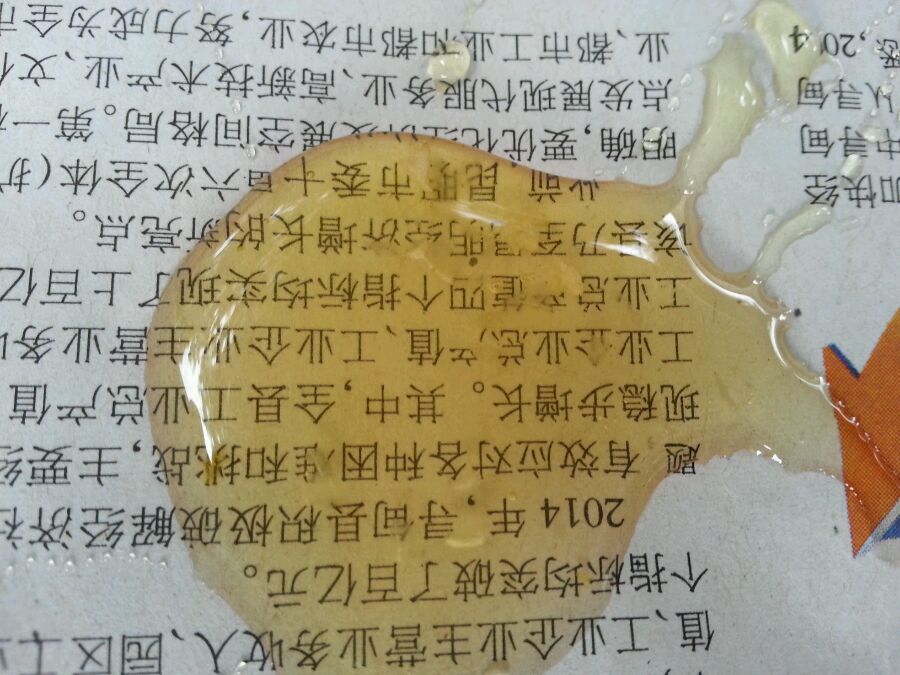 值、工业企业主营业务收入、园区工业
个指标均突破了百亿元。
2014 年，寻甸县积极破解经济社
题，有效应对各种困难和挑战，主要经
现稳步增长。其中，全县工业总产值
工业企业总产值、工业企业主营业务收
工业总产值四个指标均实现了上百亿
该县乃至昆明经济增长的新亮点。
此前，昆明市委十届六次全体（扩
明确，要优化经济发展空间格局。第一
点发展现代服务业、高新技术产业、文化
业、都市工业和都市农业，努力成为全市
加快经
寻甸
从寻甸
，2014